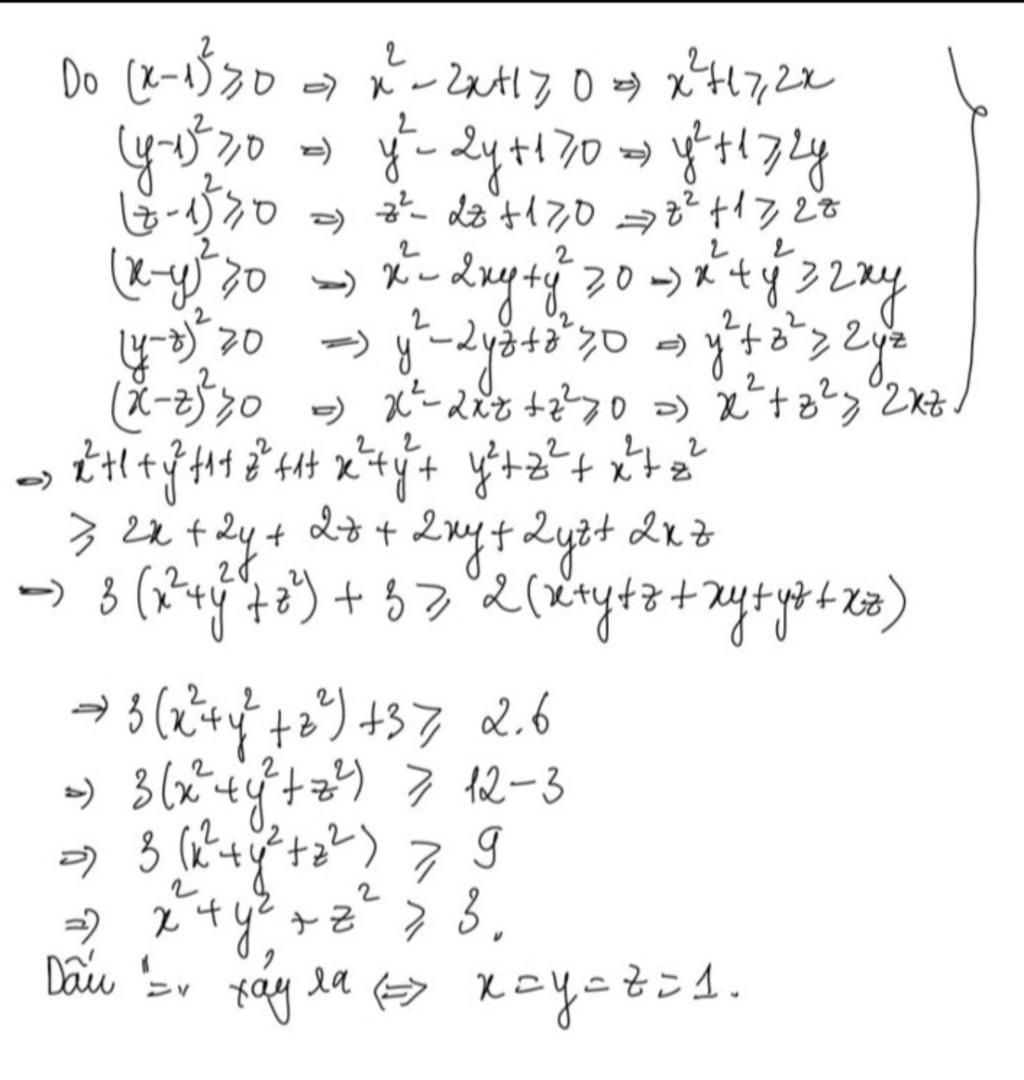 Do (x-1)² ≥ 0 => x² - 2x+1 ≥ 0 => x²+1 ≥ 2x
(y-1)² ≥ 0 => y² - 2y+1 ≥ 0 => y²+1 ≥ 2y
(z-1)² ≥ 0 => z² - 2z+1 ≥ 0 => z²+1 ≥ 2z
(x-y)² ≥ 0 => x² - 2xy+y² ≥ 0 => x²+y² ≥ 2xy
(y-z)² ≥ 0 => y² - 2yz+z² ≥ 0 => y²+z² ≥ 2yz
(x-z)² ≥ 0 => x² - 2xz+z² ≥ 0 => x²+z² ≥ 2xz
=> x²+1+y²+1+z²+1+x²+y²+y²+z²+x²+z²
≥ 2x+2y+2z+2xy+2yz+2xz
=> 3(x²+y²+z²)+3 ≥ 2(x+y+z+xy+yz+xz)
=> 3(x²+y²+z²)+3 ≥ 2.6
=> 3(x²+y²+z²) ≥ 12-3
=> 3(x²+y²+z²) ≥ 9
=> x²+y²+z² ≥ 3.
Dấu "=" xảy ra <=> x=y=z=1.